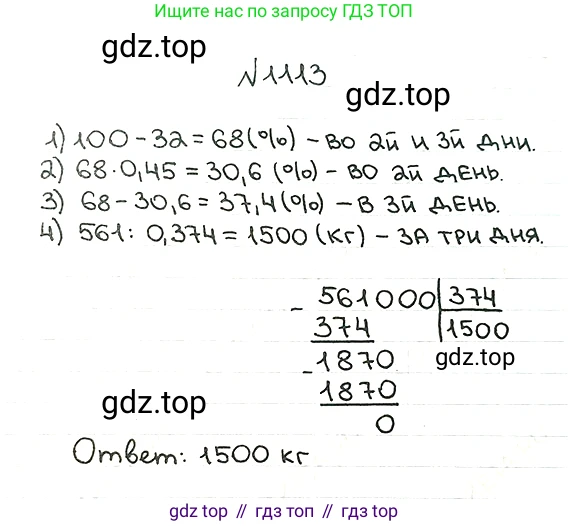 Ищите нас по запросу ГДЗ ТОП
gdz.top
№1113
gdz.top
1) 100 - 32 = 68(%) - во 2й и 3й дни.
2) 68 · 0,45 = 30,6 (%) - во 2й день.
3) 68 - 30,6 = 37,4(%) - в 3й день.
4) 561 : 0,374 = 1500 (кг) - за три дня.
- 561000 | 374
374 | 1500
- 1870 gdz.top
1870
gdz.top 0
Ответ: 1500 кг
gdz top // гдз топ // гдз.топ